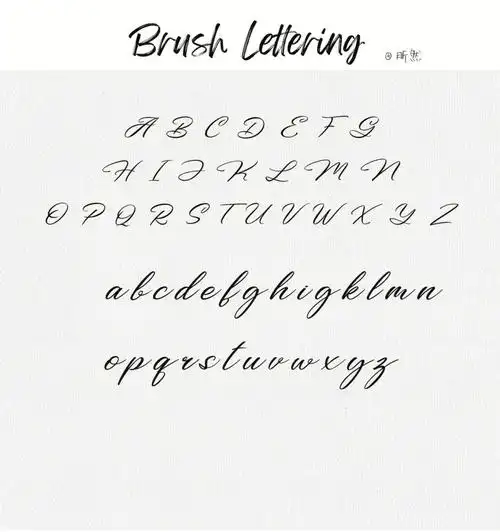 Brush Lettering
@所然
A B C D E F G
H I J K L M N
O P Q R S T U V W X Y Z
a b c d e f g h i g k l m n
o p q r s t u v w x y z